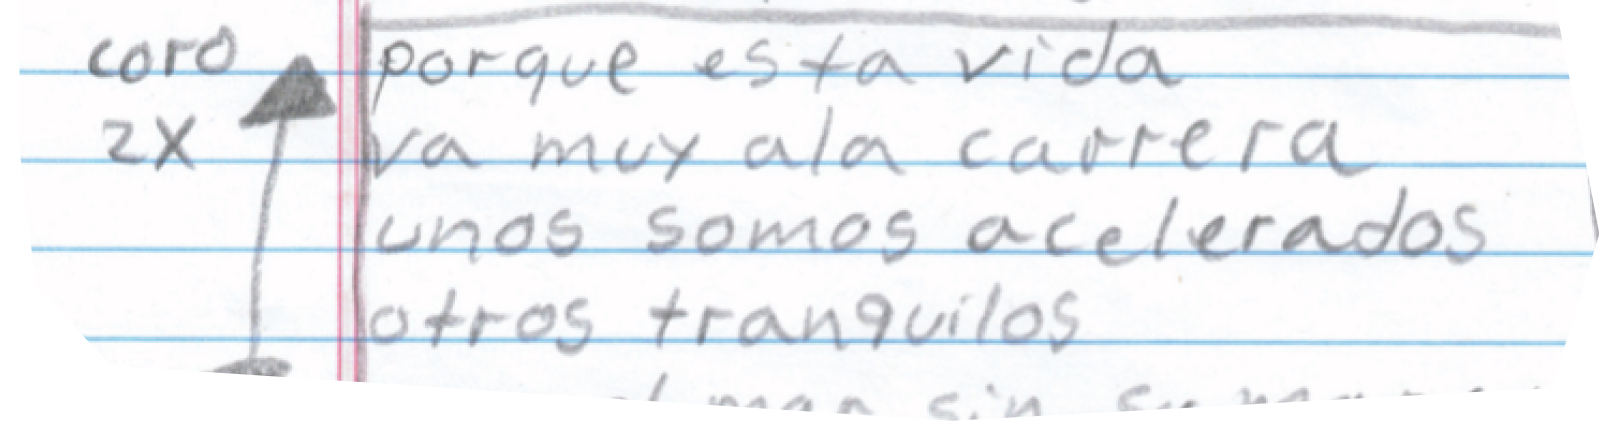 coro
2X
porque esta vida
va muy ala carrera
unos somos acelerados
otros tranquilos
sin su